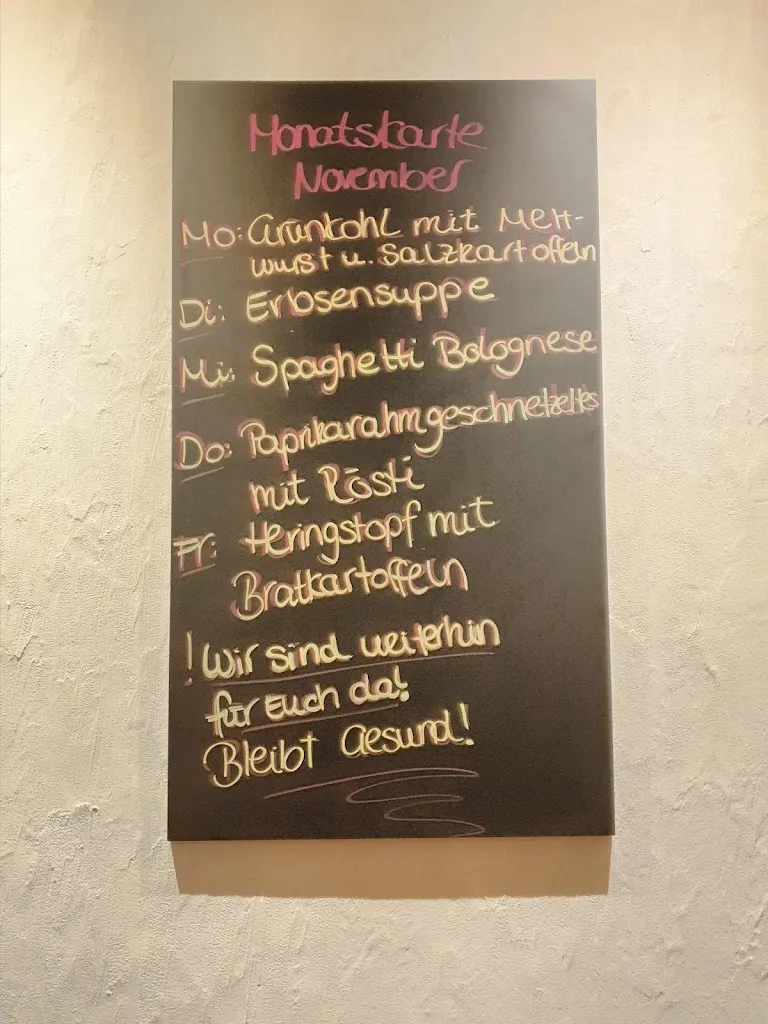 Monatskarte
November
Mo: Grünkohl mit Mett-
wurst u. Salzkartoffeln
Di: Erbsensuppe
Mi: Spaghetti Bolognese
Do: Paprikarahmgeschnetzeltes
mit Rösti
Fr: Heringstopf mit
Bratkartoffeln
! Wir sind weiterhin
für Euch da!
Bleibt Gesund!